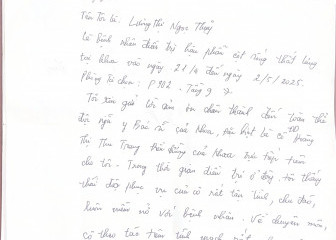 Tên tôi là. Lương Thị Ngọc Thuý
Là bệnh nhân điều trị hậu phẫu cột sống thắt lưng
tại khoa vào ngày 21/4 đến ngày 2/5/2025.
Phòng tự chọn: P902. Tầng 9
Tôi xin gửi lời cảm ơn chân thành đến toàn thể
đội ngũ y bác sĩ của khoa, đặc biệt là cô Hoàng
Thị Thu Trang điều dưỡng của khoa trực tiếp tiêm
cho tôi. Trong thời gian điều trị ở đây, tôi thấy
thái độ phục vụ của cô rất tận tình, chu đáo,
luôn niềm nở với bệnh nhân. Về chuyên môn
cô thao tác tiêm tĩnh mạch rất